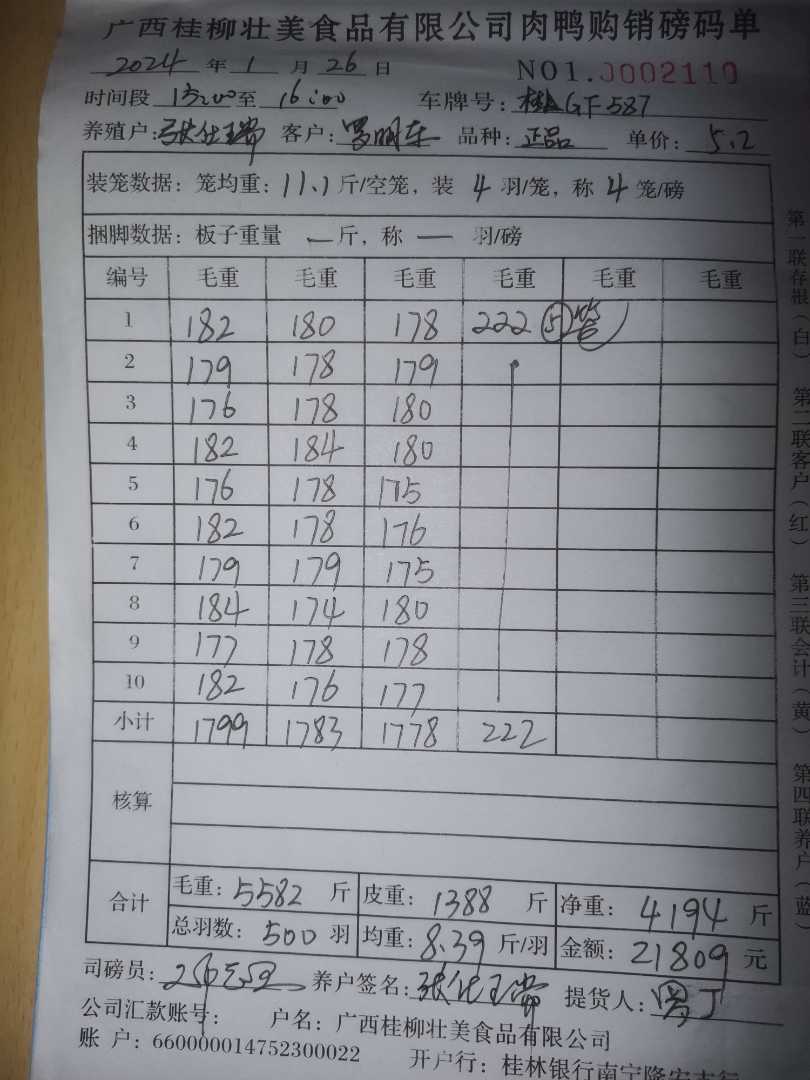 广西桂柳壮美食品有限公司肉鸭购销磅码单
2024 年 1 月 26 日 NO1.0002110
时间段 15:00 至 16:00 车牌号: GF587
养殖户: 张仕瑞 客户: 罗明东 品种: 正品 单价: 5.2
装笼数据: 笼均重: 11.1 斤/空笼, 装 4 羽/笼, 称 4 笼/磅
捆脚数据: 板子重量 — 斤, 称 — 羽/磅
编号 毛重 毛重 毛重 毛重 毛重 毛重
1 182 180 178 222 ⑤笼
2 179 178 179
3 176 178 180
4 182 184 180
5 176 178 175
6 182 178 176
7 179 179 175
8 184 174 180
9 177 178 178
10 182 176 177
小计 1799 1783 1778 222
核算
合计 毛重: 5582 斤 皮重: 1388 斤 净重: 4194 斤
总羽数: 500 羽 均重: 8.39 斤/羽 金额: 21809 元
司磅员: 养户签名: 张仕瑞 提货人: 罗丁
公司汇款账号: 户名: 广西桂柳壮美食品有限公司
账 户: 660000014752300022 开户行: 桂林银行南宁隆安支行
第一联存根(白) 第二联客户(红) 第三联会计(黄) 第四联养户(蓝)